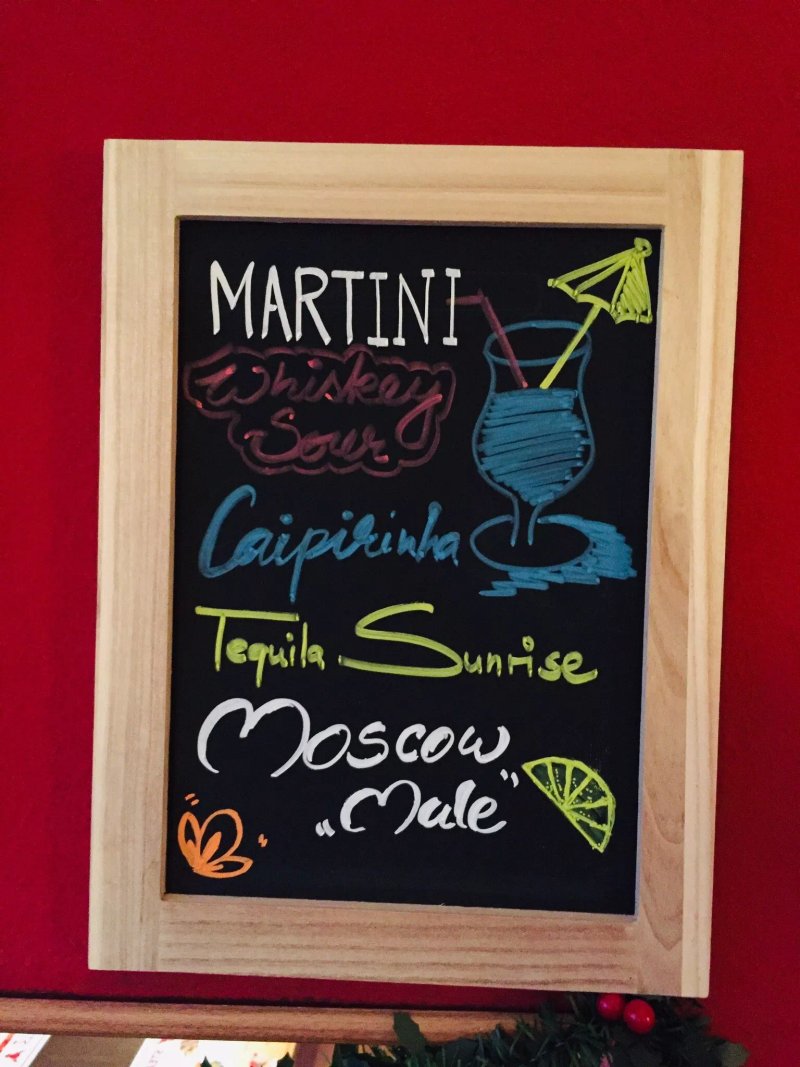 MARTINI
Whiskey
Sour
Caipirinha
Tequila Sunrise
Moscow
„Male"